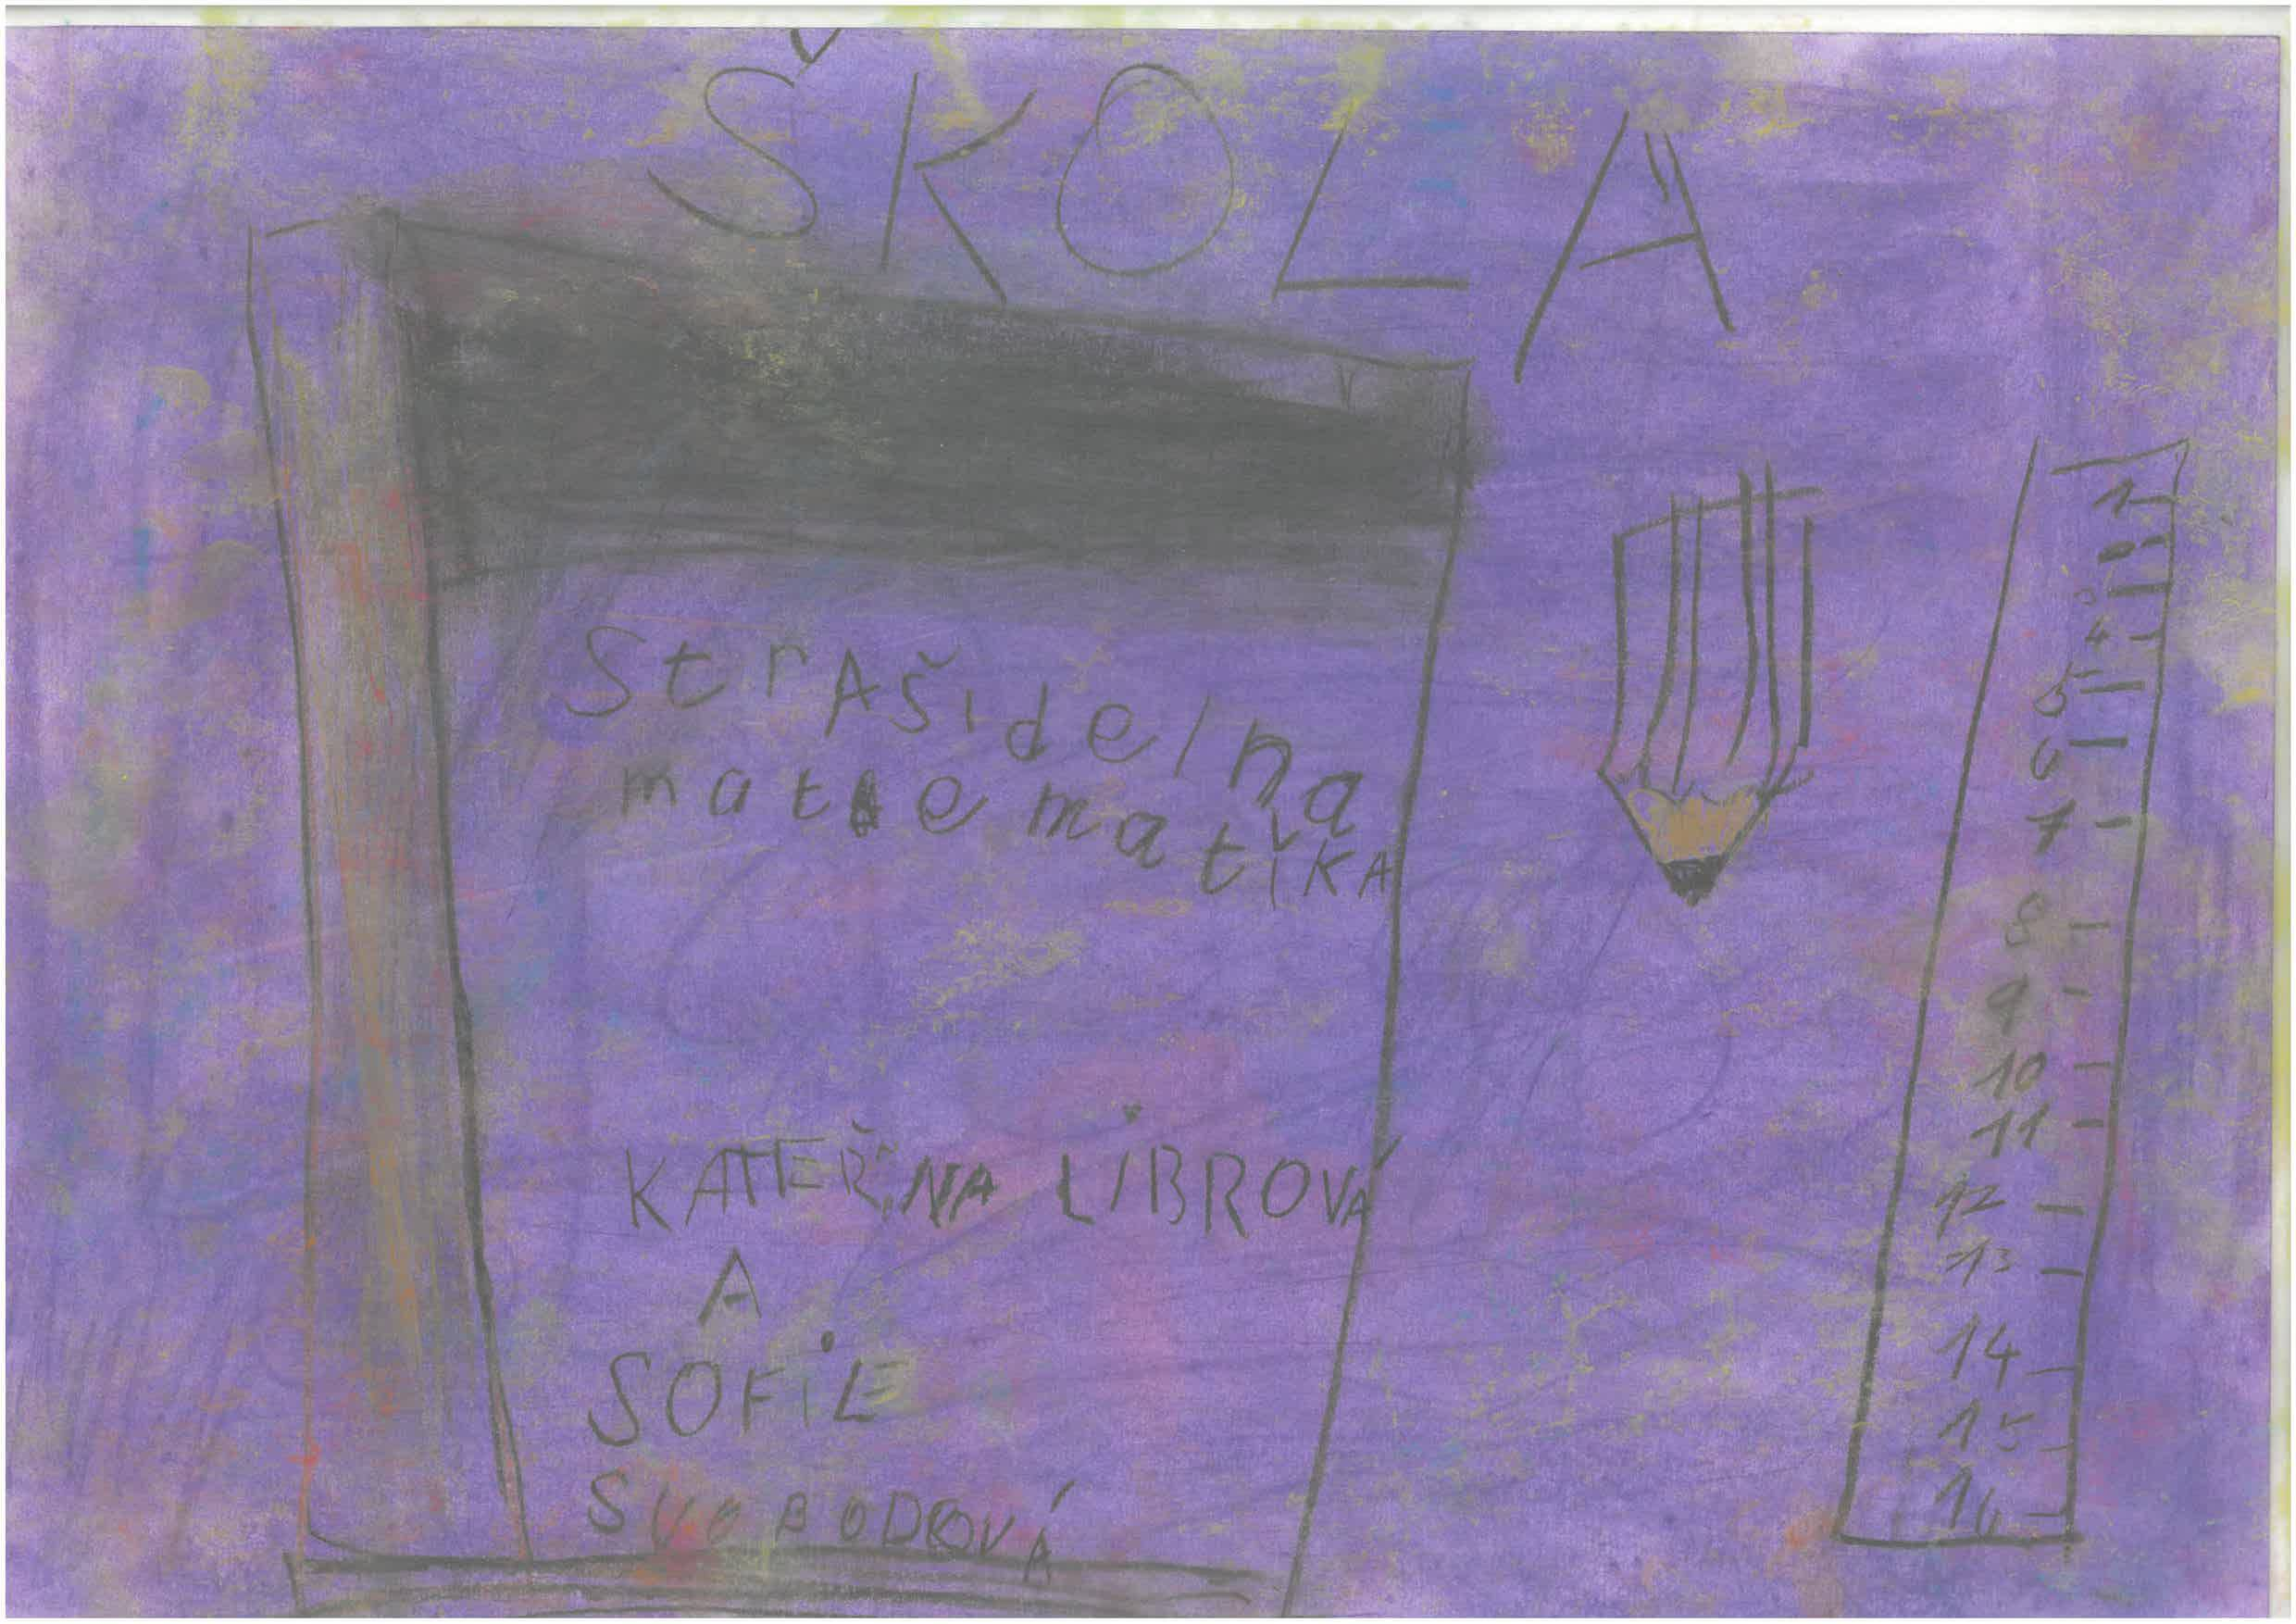 ŠKOLA
StrAšidelna
matematika
KATEŘiNA LiBROVÁ
A
SOFiE
SVOBODOVÁ
1
4
5
6
7
8
9
10
11
12
13
14
15
16